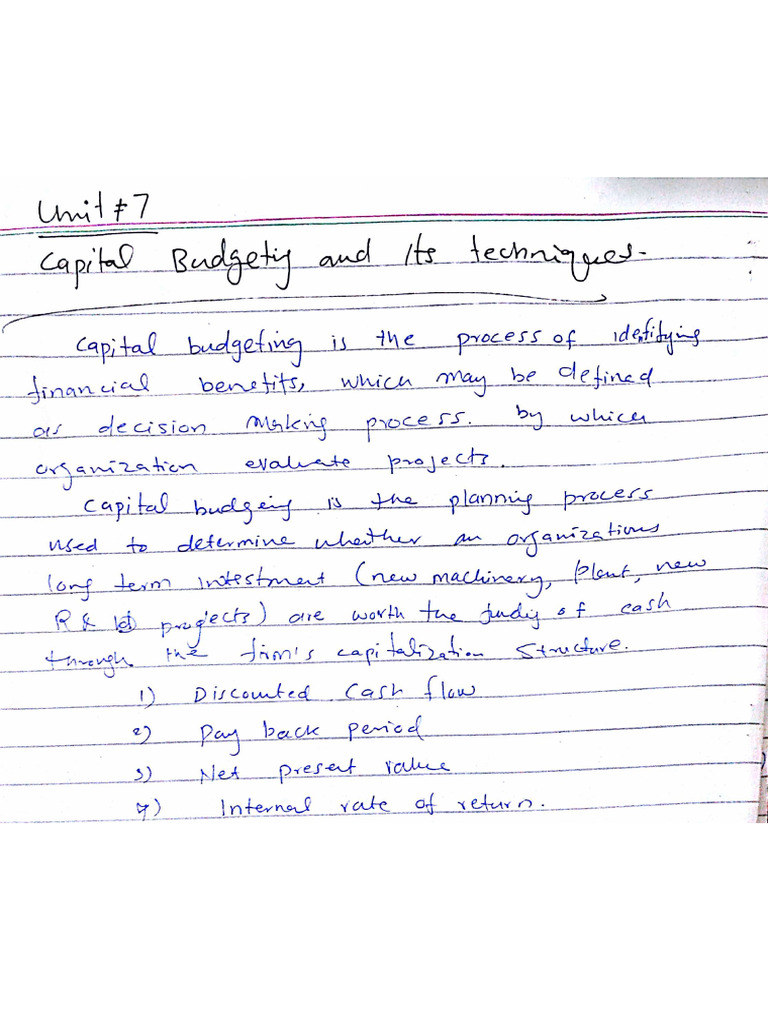 Unit # 7
Capital Budgetig and Its techniques.
Capital budgeting is the process of identifying
financial benefits, which may be defined
as decision making process. by which
organization evaluate projects.
Capital budgeig is the planning process
used to determine whether an organizations
long term intestment (new machinery, plant, new
R & D projects) are worth the fundig of cash
through the firm's capitalization structure.
1) Discounted Cash flow
2) Pay back period
3) Net present value
4) Internal rate of return.